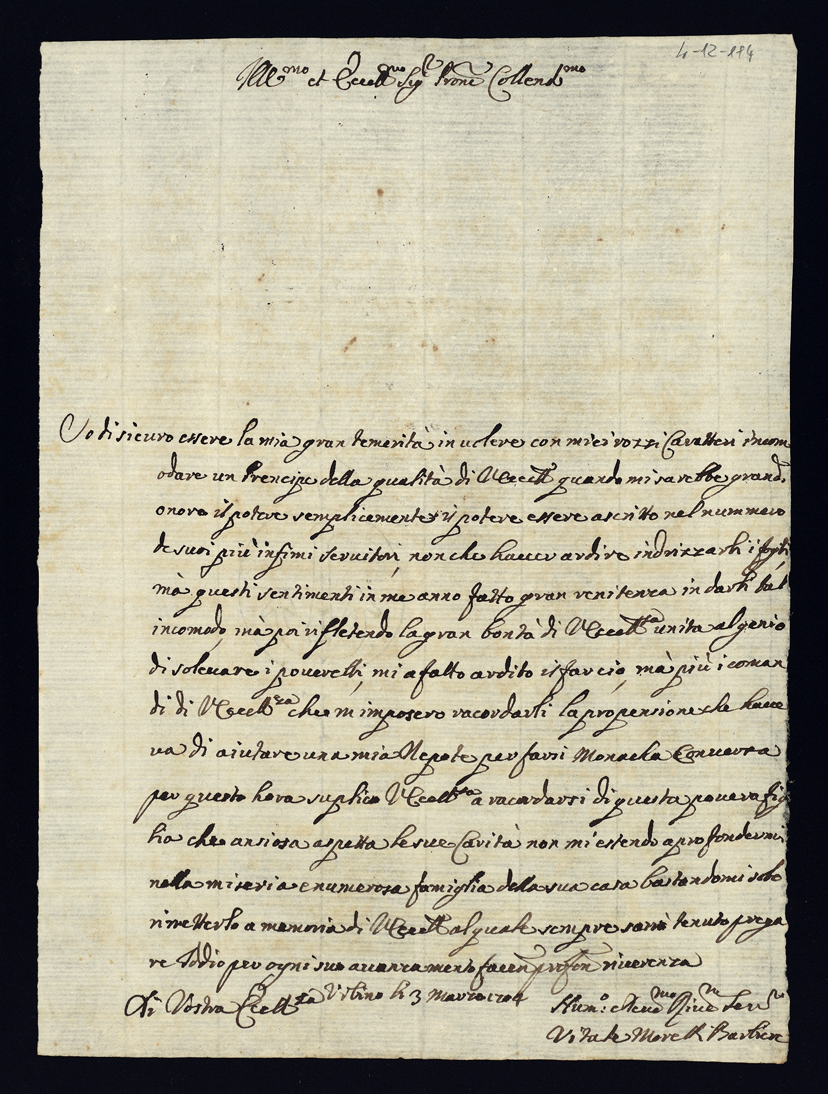 4-12-114
Ill.mo et Eccell.mo Sig.r Prone Collend.mo
So di sicuro essere la mia gran temerità in uolere con miei rozzi Caratteri incom
odare un Prencipe della qualità di VEccell.a quando mi sarebbe grand.
onore il potere semplicemente il potere essere ascritto nel nummero
de suoi più infimi seruitori, non che hauer ardire indrizzarli i fogli
mà questi sentimenti in me anno fatto gran renitenza in darli tal
incomodo, mà poi rifletendo la gran bontà di VEccell.za unita al genio
di soleuare i pouerelli, mi a fatto ardito il far ciò, mà più i coman
di di VEccell.za che m'imposero racordarli la propensione che haue
ua di aiutare una mia Nepote per farsi Monacha Conuersa
per questo hora suplico VEccell.za a racordarsi di questa pouera fig
lia che ansiosa aspetta le sue Carità non mi estendo a profondermi
nella miseria e numerosa famiglia della sua casa bastandomi solo
rimetterlo a memoria di VEccell.a al quale sempre sarò tenuto prega
re Iddio per ogni suo auanzamento facen. profon. riuerenza
Di Vostra Eccell.za Vrbino li 3 Marzo 1704
Hum.o e Deu.mo Riue. Seru.
Vitale Morelli Barbiere